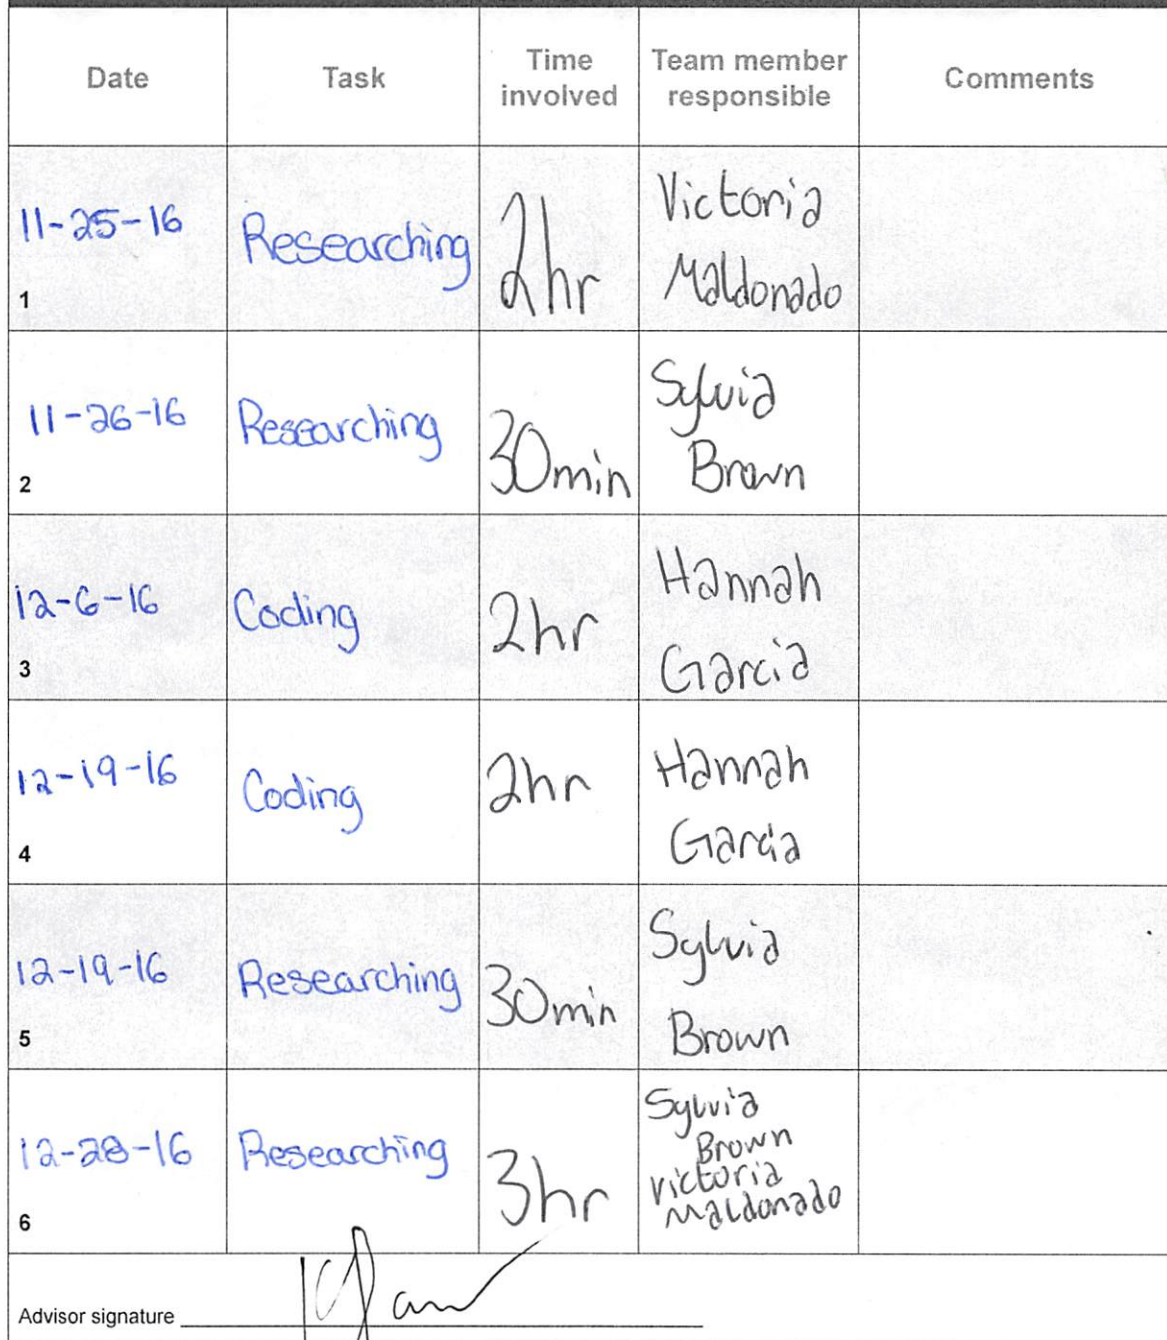 Date Task Time involved Team member responsible Comments
11-25-16 Researching 2hr Victoria Maldonado
1
11-26-16 Researching 30min Sylvia Brown
2
12-6-16 Coding 2hr Hannah Garcia
3
12-19-16 Coding 2hr Hannah Garcia
4
12-19-16 Researching 30min Sylvia Brown
5
12-28-16 Researching 3hr Sylvia Brown Victoria Maldonado
6
Advisor signature